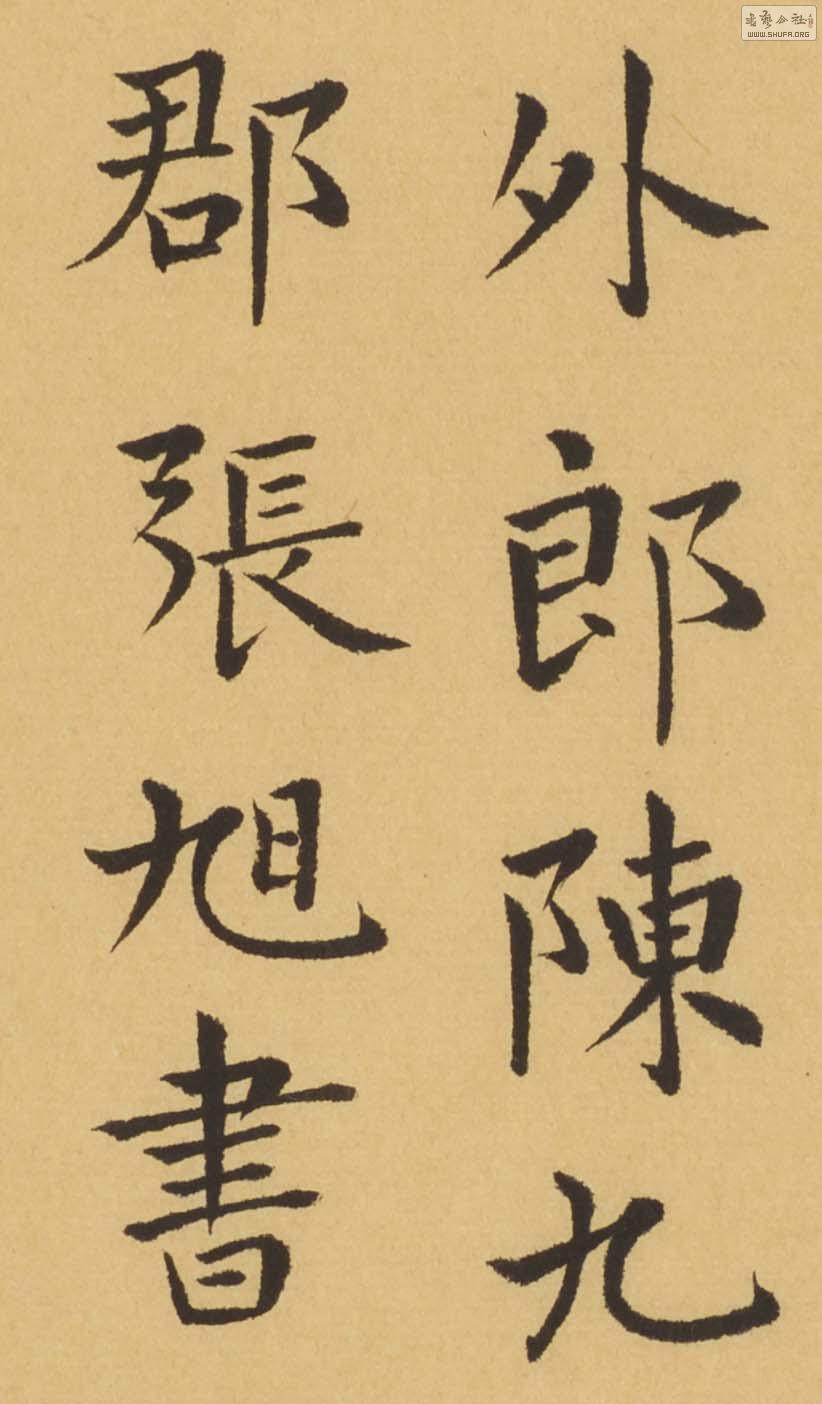 外郎陳九
郡張旭書
書藝公社
WWW.SHUFA.ORG